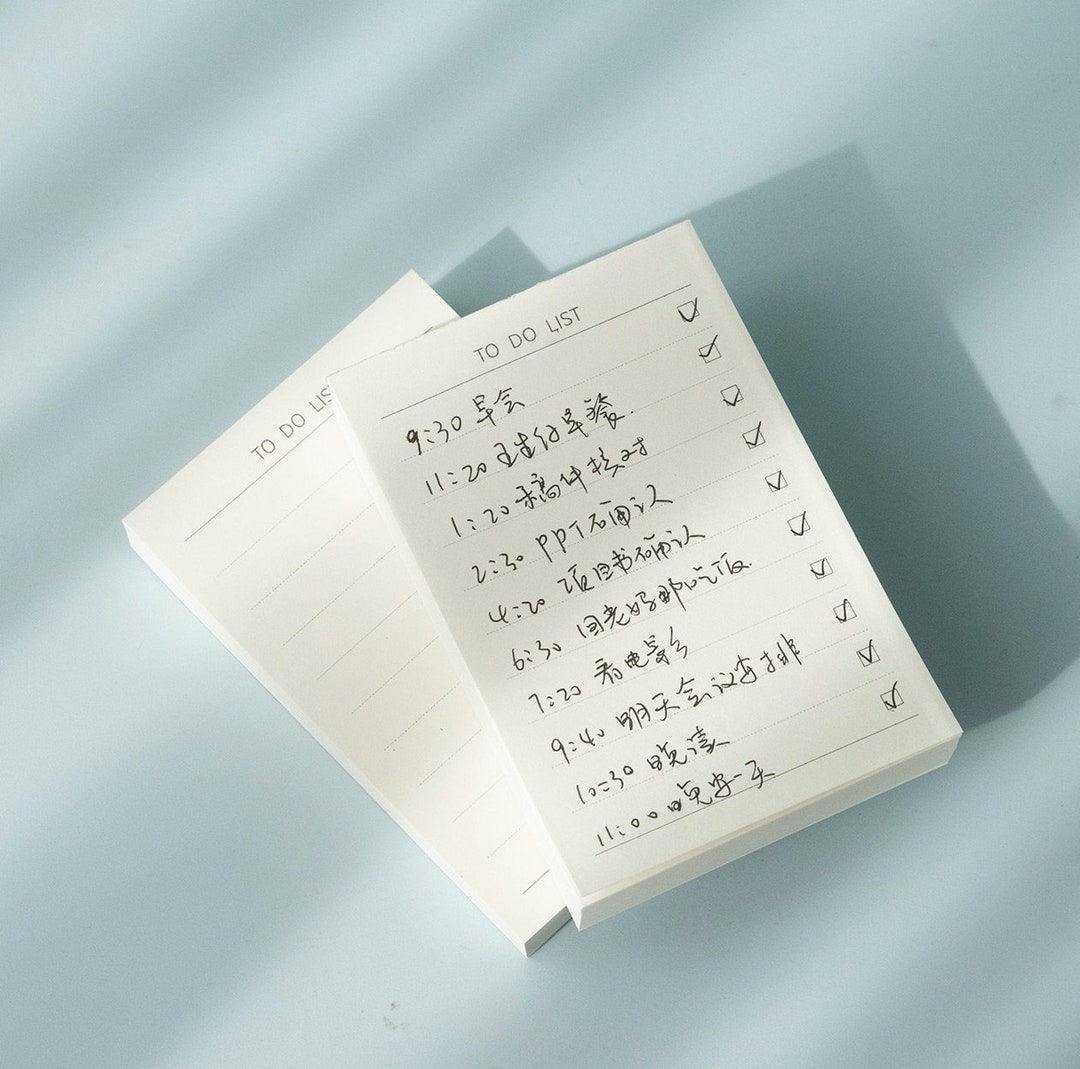 TO DO LIST
9:30 早会
11:20 早餐
1:20 稿件核对
2:30 PPT确认
4:20 项目书确认
6:30 吃饭
7:20 看电影
9:40 明天会议安排
10:30 晚读
11:00 晚安一天
TO DO LIS